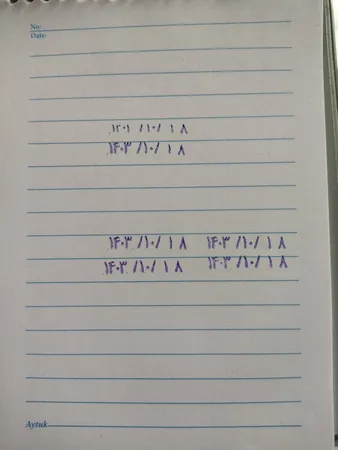 No:
Date:
۱۴۰۳/۱۰/۱۸
۱۴۰۳/۱۰/۱۸ ۱۴۰۳/۱۰/۱۸
۱۴۰۳/۱۰/۱۸ ۱۴۰۳/۱۰/۱۸
Aytuk